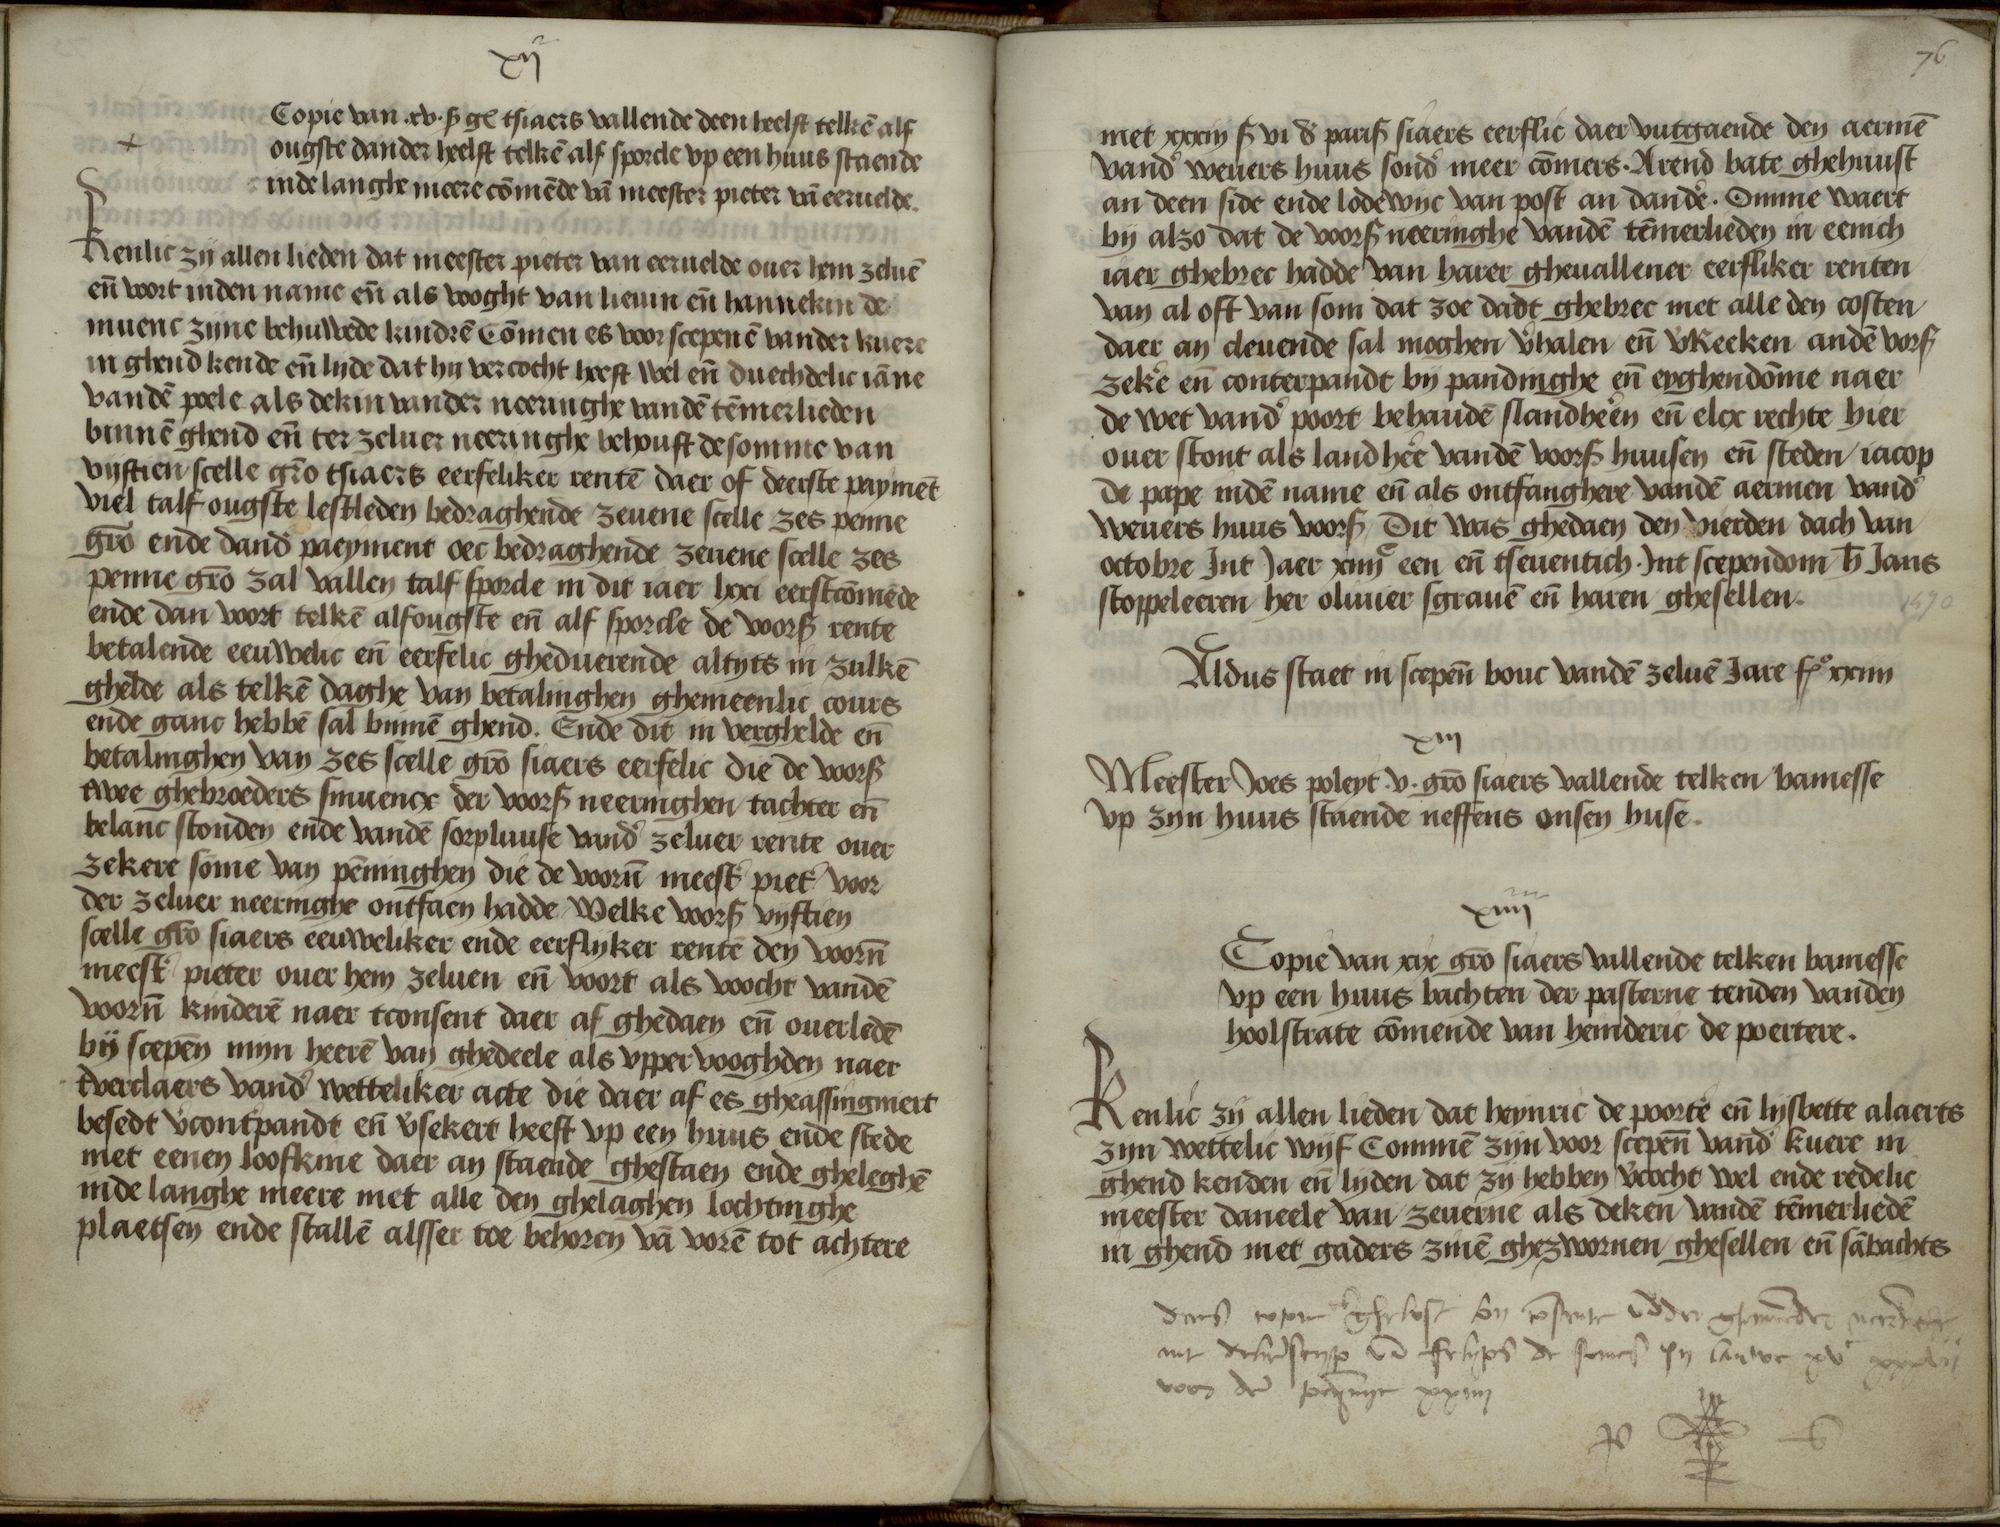 xij
Copie van .xv. s̃ gr̃ tsiaers vallende deen heelft telkē alf
ougste dander heelft telkē alf sporcle vp een huus staende
inde langhe meere cōmēde vā meester pieter vā eeruelde.
Kenlic zij allen lieden dat meester pieter van eeruelde ouer hem zeluē
eñ voort inden name eñ als vooght van lieuin eñ hannekin de
muenc zijne behuwede kindrē Cōmen es voor scepenē vander kuere
in ghend kende eñ lijde dat hij vercocht heeft wel eñ duechdelic iāne
vandē poele als dekin vander neeringhe vandē tēmerlieden
binnē ghend eñ ter zeluer neeringhe behouft de somme van
vijftien scelle grō tsiaers eerfeliker rentē daer of deerste paymēt
viel talf ougste lestleden bedraghende zeuene scelle zes penne
grō ende dand' paeyment oec bedraghende zeuene scelle zes
penne grō zal vallen talf sporcle in dit iaer lxxi eerstcōmēde
ende dan voort telkē alfougste eñ alf sporcle de voors̃ rente
betalende eeuwelic eñ eerfelic gheduerende altyts in zulkē
ghelde als telkē daghe van betalinghen ghemeenlic cours
ende ganc hebbē sal binnē ghend. Ende dit in verghelde eñ
betalinghen van zes scelle grō siaers eerfelic die de voors̃
twee ghebroeders smuencx der voors̃ neeringhen tachter eñ
belanc stonden ende vandē sorpluuse vand' zeluer rente ouer
zekere sōme van pēninghen die de voorñ meest' piet' voor
der zeluer neeringhe ontfaen hadde Welke voors̃ vijftien
scelle grō siaers eeuweliker ende eerflijker rente den voorñ
meest' pieter ouer hem zeluen eñ voort als voocht vandē
voorñ kinderē naer tconsent daer af ghedaen eñ ouerledē
bij scepēn mijn heerē van ghedeele als vpper vooghden naer
tverclaers vand' wetteliker acte die daer af es gheassingniert
besedt v'cont'pandt eñ v'sekert heeft vp een huus ende stede
met eenen loofkine daer an staende ghestaen ende gheleghē
inde langhe meere met alle den ghelaghen lochtinghe
plaetsen ende stallē alsser toe behoren vā vorē tot achtere
76
met xxxiij s̃ vi d' paris̃ siaers eerflic daer vutgaende den aermē
vand' weuers huus sond' meer cōmers. Arend bate ghehuust
an deen side ende lodewijc van post an dand'e. Omme waert
bij alzo dat de voors̃ neeringhe vandē tēmerlieden in eenich
iaer ghebrec hadde van harer gheuallener eerfliker renten
van al oft van som dat zoe dadt ghebrec met alle den costen
daer an cleuende sal moghen v'halen eñ v'Recken andē vors̃
zek'e eñ conterpandt bij pandinghe eñ eyghendōme naer
de wet vand' poort behaudē slandheērn eñ elcx rechte hier
ouer stont als landheēr vandē voors̃ huusen eñ steden iacop
de pape indē name eñ als ontfanghere vandē aermen vand'
weuers huus voors̃ Dit was ghedaen den vierden dach van
octobre Int Jaer xiiijᶜ een eñ tseuentich. Int scependom h̃ Jans
stoppeleeren her oliuier sgrauē eñ haren ghesellen.
1470
Aldus staet in scepeñ bouc vandē zeluē Jare fº xxiiii
xiij
Meester Joes poleyt .v. grō siaers vallende telken bamesse
vp zijn huus staende neffens onsen huse.
xiiij
Copie van xix grō siaers vallende telken bamesse
vp een huus bachten der pasterne tenden vanden
hoolstrate cōmende van heinderic de poertere.
Kenlic zij allen lieden dat heynric de poort'e eñ lijsbette alaerts
zijn wettelic wijf Commē zijn voor scepeñ vand' kuere in
ghend kenden eñ lijden dat zij hebben v'cocht wel ende redelic
meester daneele van zeuerne als deken vandē tēmerliedē
in ghend met gaders zinē ghezwornen ghesellen eñ sābachts